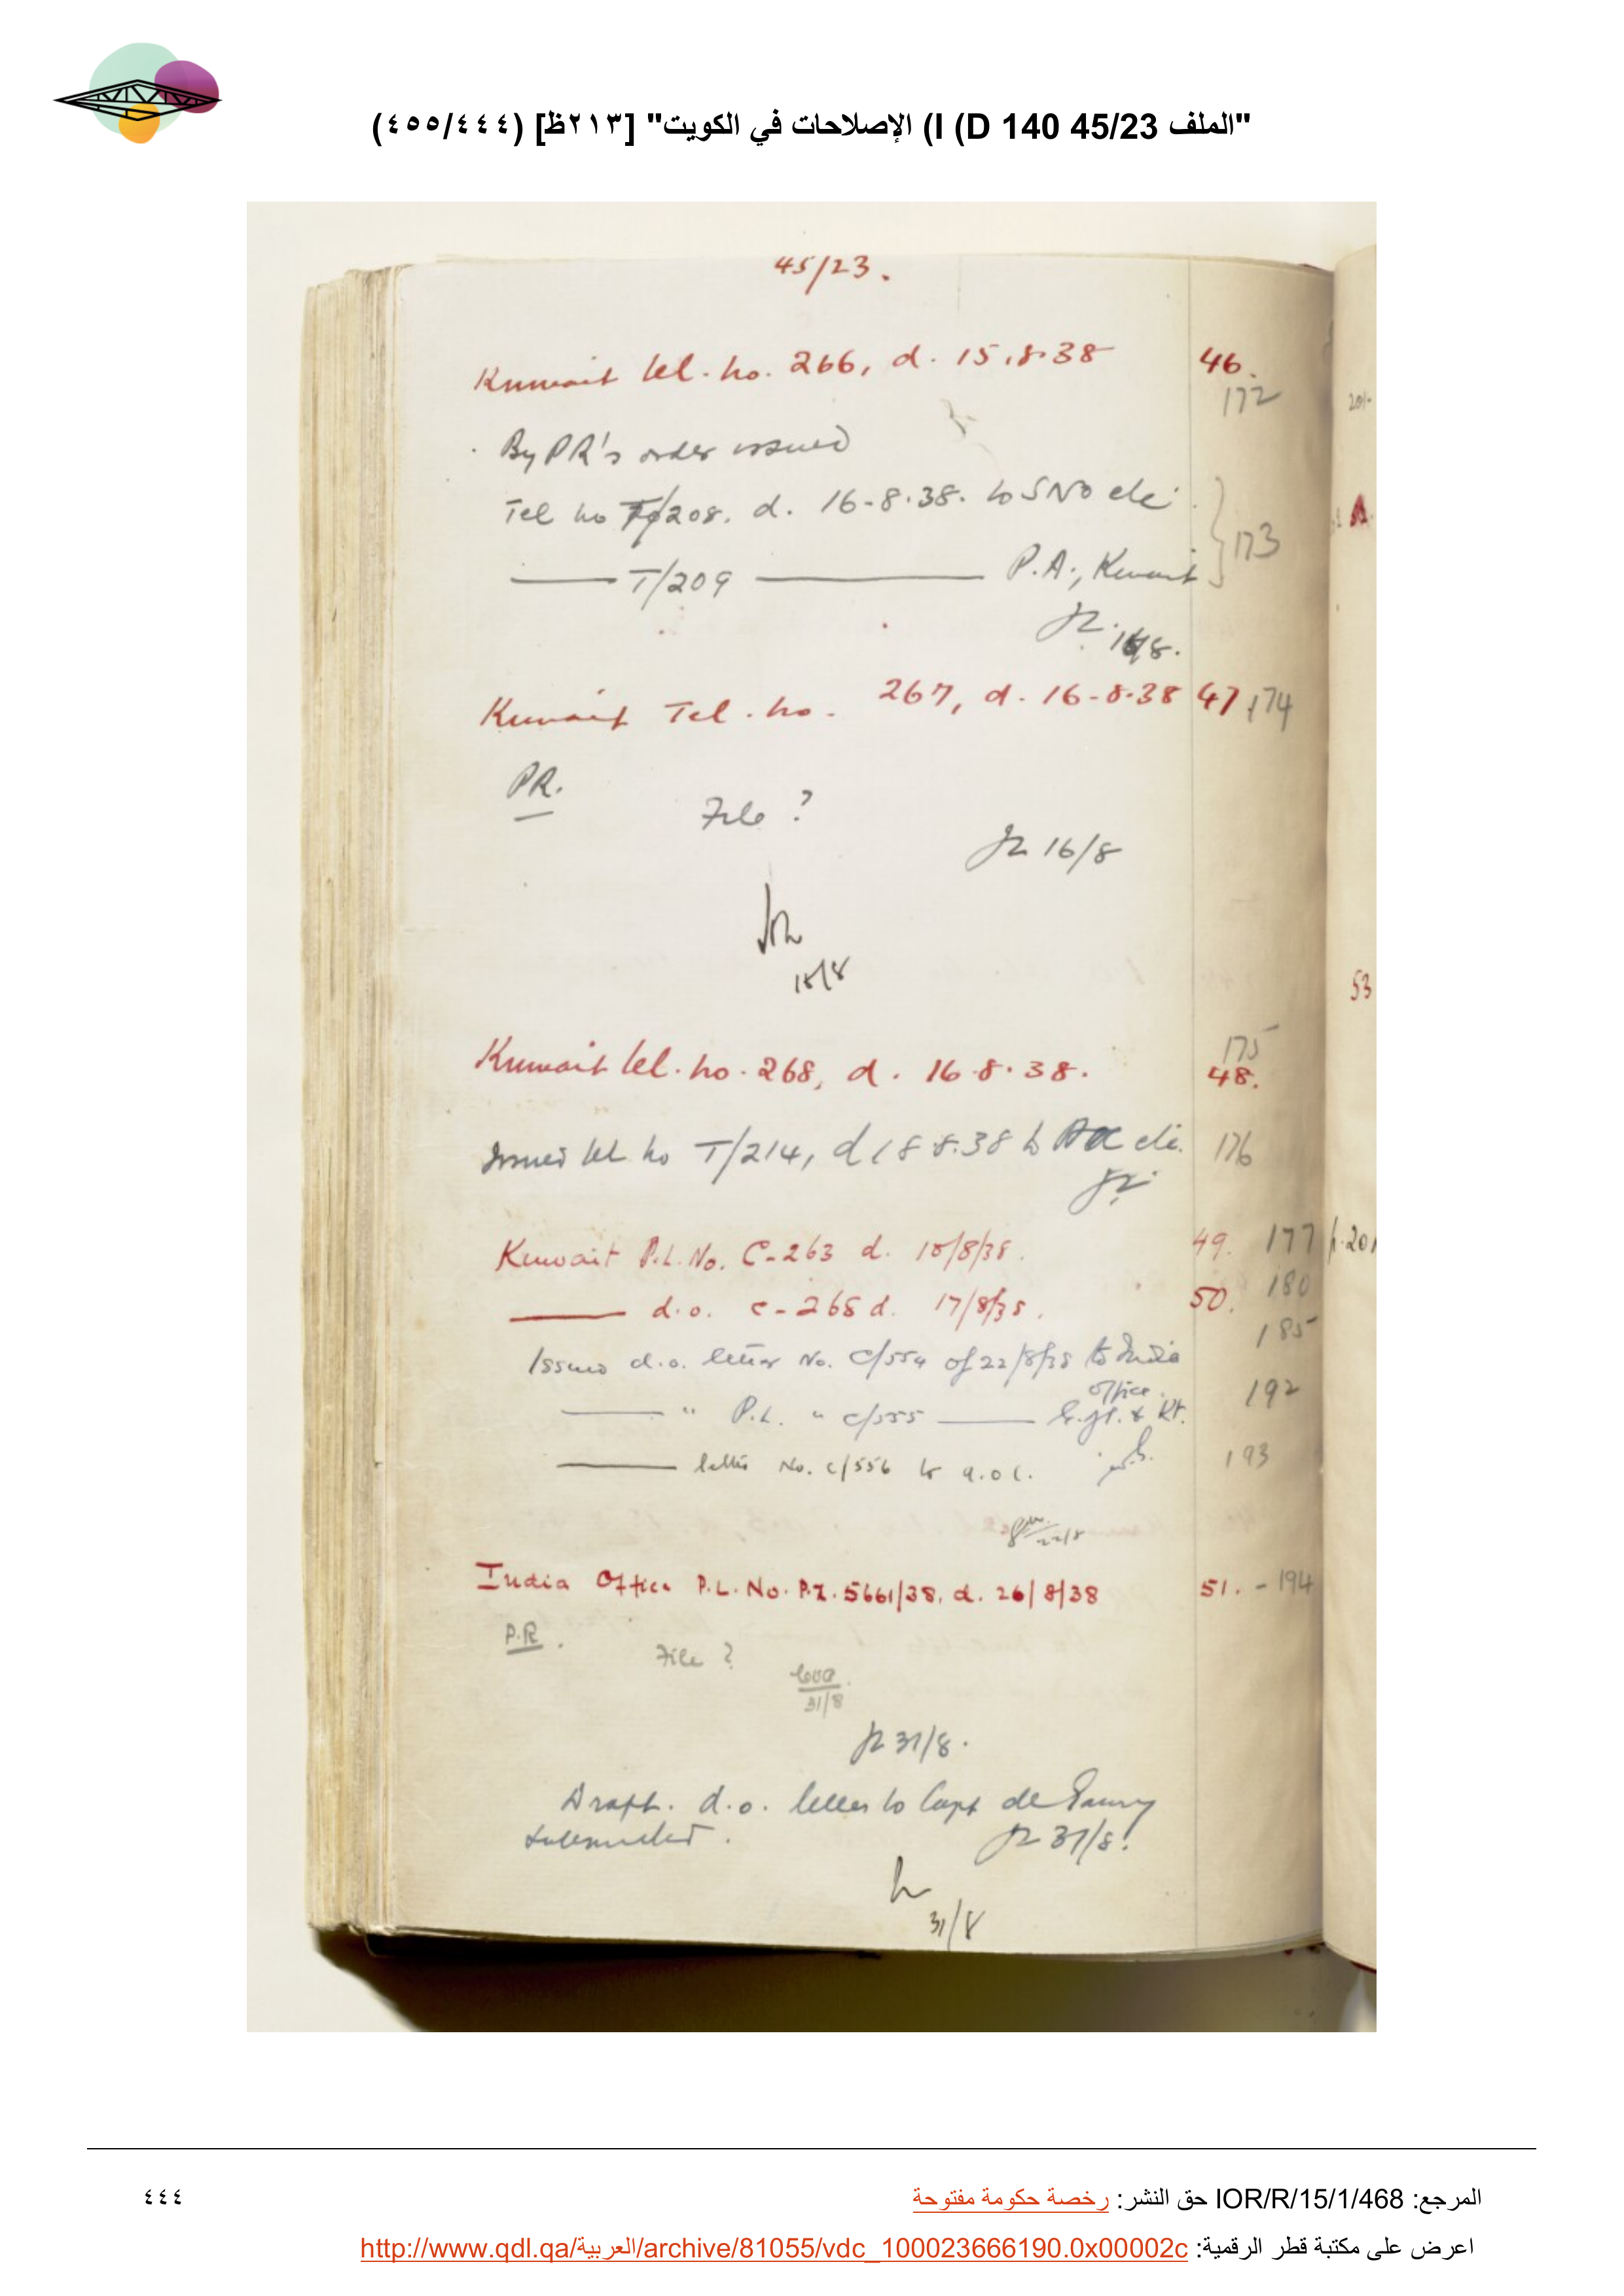 "الملف 45/23 140 I (D) الإصلاحات في الكويت" [٢١٣ظ] (٤٤٤/٤٥٥)
45/23.
Kuwait tel. no. 266, d. 15.8.38 46.
172
By PR's order issued
Tel no T/208. d. 16-8-38. to SNO etc. 173
T/209 P.A., Kuwait
16/8.
Kuwait Tel. no. 267, d. 16-8-38 47 174
PR.
File ?
16/8
18/8
53
175
Kuwait tel. no. 268, d. 16.8.38. 48.
Issued tel no T/214, d 18.8.38 to etc. 176
Kuwait P.L. No. C-263 d. 18/8/38. 49. 177
d.o. C-268 d. 17/8/38. 50. 180
185
Issued d.o. letter No. C/554 of 22/8/38 to India
office. 192
" P.L. " C/555 & Kt.
letter No. C/556 to A.O.C. 193
22/8
India Office P.L. No. P.Z. 5661/38, d. 26/8/38 51. - 194
P.R.
File ?
31/8
31/8.
Draft. d.o. letter to Capt de Gaury
submitted. 31/8.
31/8
المرجع: IOR/R/15/1/468 حق النشر: رخصة حكومة مفتوحة
٤٤٤
اعرض على مكتبة قطر الرقمية: http://www.qdl.qa/العربية/archive/81055/vdc_100023666190.0x00002c